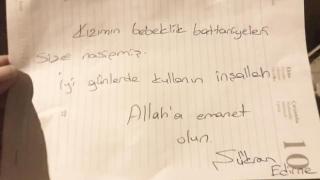 Kızımın bebeklik battaniyeleri
size nasipmiş.
İyi günlerde kullanın inşallah
Allah'a emanet
olun.
Şükran
Edirne
10